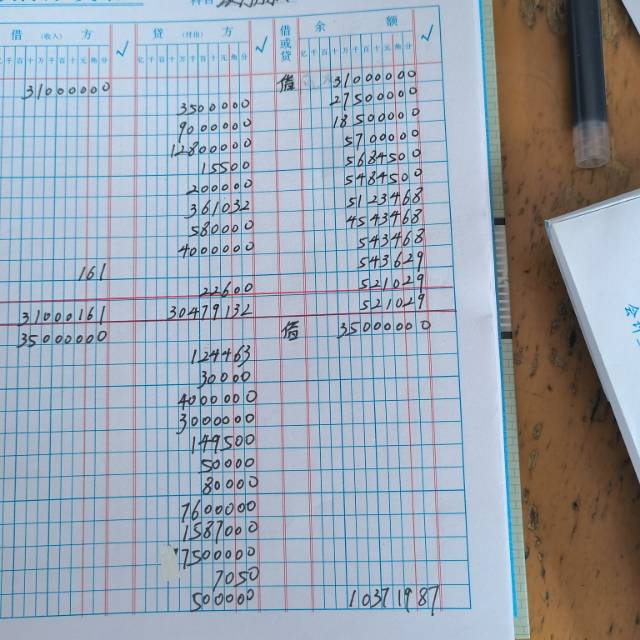 科目
借 (收入) 方 √ 贷 (付出) 方 √ 借或贷 余 额 √
亿千百十万千百十元角分 亿千百十万千百十元角分 亿千百十万千百十元角分
31000000 借 31000000
3500000 27500000
9000000 18500000
12800000 5700000
15500 5684500
200000 5484500
361032 5123468
580000 4543468
4000000 543468
161 543629
22600 521029
31000161 30479132 521029
35000000 借 35000000
124463
30000
4000000
3000000
149500
50000
80000
7600000
1587000
7500000
7050
500000 10371987